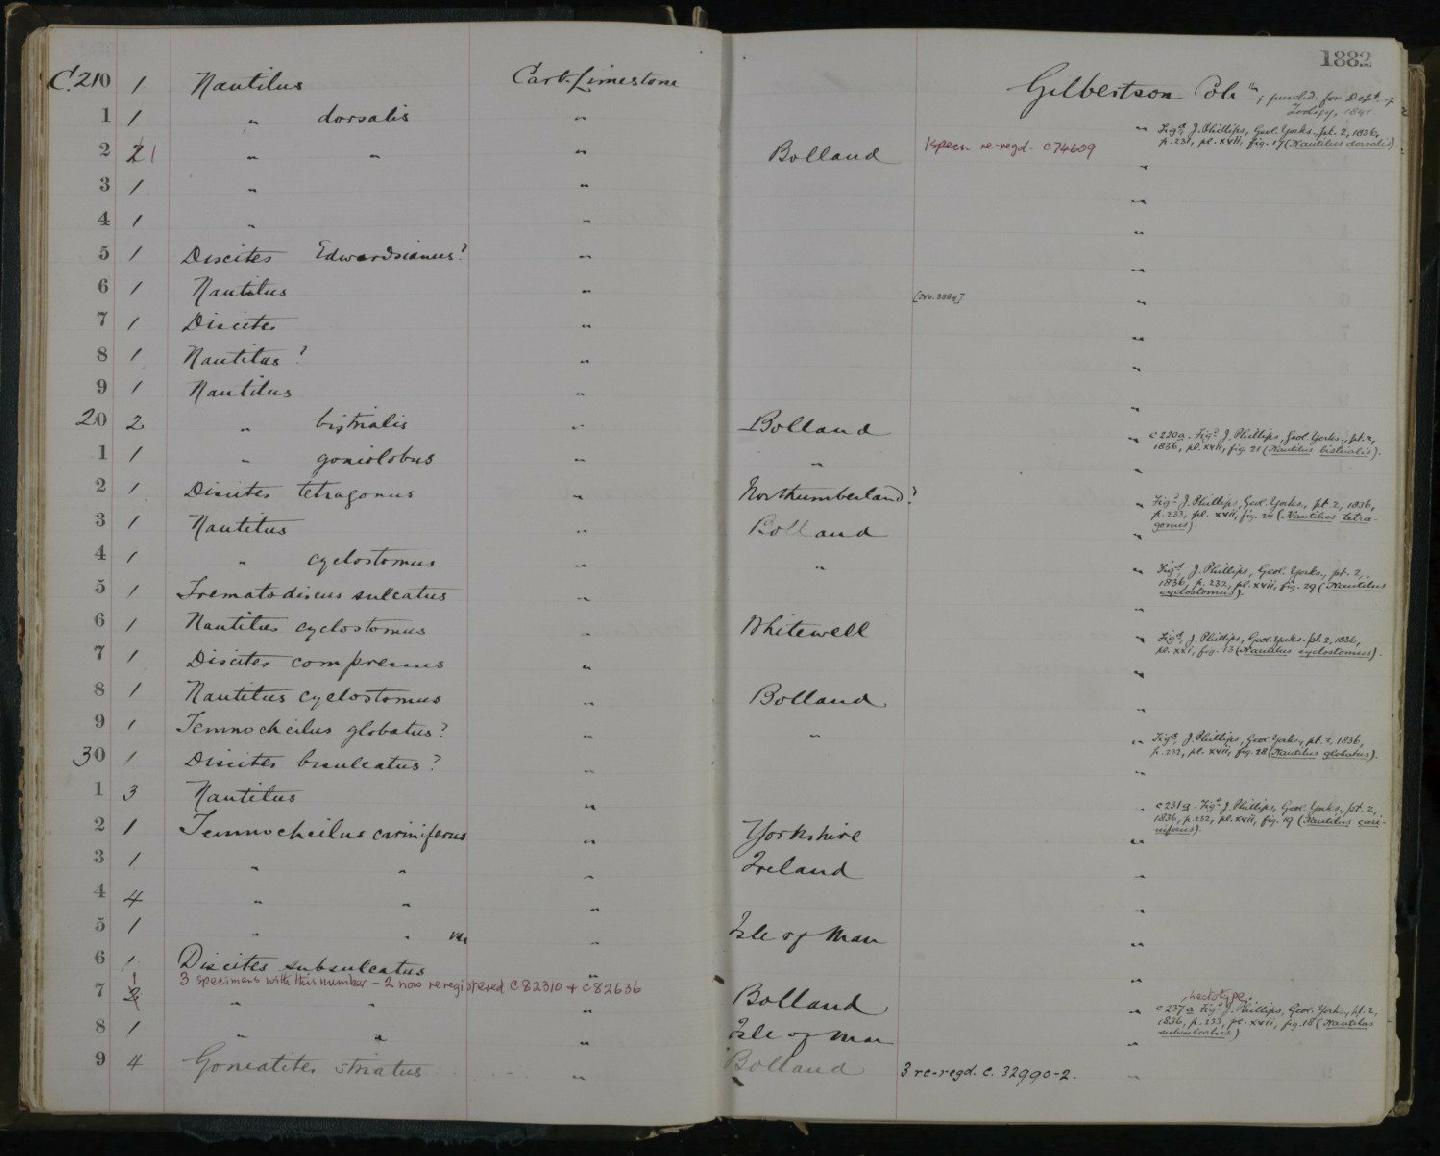 1882
C.210 1 Nautilus Carb. Limestone Gilbertson Coll; purchd. for Dept. of
Zoology, 1841.
1 1 " dorsalis " " Figd. J. Phillips, Geol. Yorks. pt. 2, 1836,
p. 231, pl. xvii, fig. 17 (Nautilus dorsalis).
2 2 1 " " " Bolland 1 specn re-regd. C74609 "
3 1 " " "
4 1 " " "
5 1 Discites Edwardsianus? " "
6 1 Nautilus " "
7 1 Discites " "
8 1 Nautilus? " "
9 1 Nautilus " "
20 2 " bistrialis " Bolland " C220a. Figd. J. Phillips, Geol. Yorks., pt. 2,
1836, pl. xvii, fig. 21 (Nautilus bistrialis).
1 1 " goniolobus " " "
2 1 Discites tetragonus " Northumberland? " Figd. J. Phillips, Geol. Yorks., pt. 2, 1836,
p. 233, pl. xvii, fig. (Nautilus tetra-
gonus).
3 1 Nautilus " Bolland "
4 1 " cyclostomus " " " Figd. J. Phillips, Geol. Yorks., pt. 2,
1836, p. 232, pl. xvii, fig. 29 (Nautilus
cyclostomus).
5 1 Trematodiscus sulcatus " "
6 1 Nautilus cyclostomus " Whitewell " Figd. J. Phillips, Geol. Yorks. pt. 2, 1836,
pl. xxi, fig. 13 (Nautilus cyclostomus).
7 1 Discites compressus " "
8 1 Nautilus cyclostomus " Bolland "
9 1 Temnocheilus globatus? " " " Figd. J. Phillips, Geol. Yorks., pt. 2, 1836,
p. 232, pl. xvii, fig. 28 (Nautilus globatus).
30 1 Discites bisulcatus? " "
1 3 Nautilus " " C231a. Figd. J. Phillips, Geol. Yorks. pt. 2,
1836, p. 232, pl. xvii, fig. 19 (Nautilus cari-
niferus).
2 1 Temnocheilus cariniferus " Yorkshire "
3 1 " " " Ireland "
4 4 " " " "
5 1 " " var " Isle of Man "
6 1 Discites subsulcatus " "
3 specimens with this number – 2 now reregistered C82310 + C82636
7 2 1 " " " Bolland " Lectotype
C237a Figd. J. Phillips, Geol. Yorks., pt. 2,
1836, p. 233, pl. xvii, fig. 18 (Nautilus
subsulcatus)
8 1 " " " Isle of Man "
9 4 Goniatites striatus " Bolland 3 re-regd. C. 32990-2. "